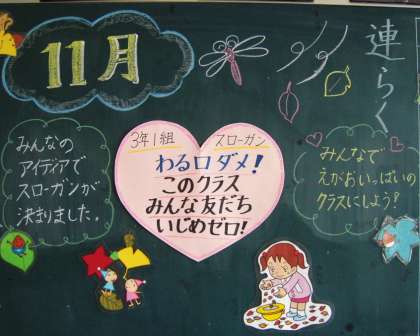 11月
連らく
みんなの
アイディアで
スローガンが
決まりました。
3年1組 スローガン
わる口ダメ!
このクラス
みんな友だち
いじめゼロ!
みんなで
えがおいっぱいの
クラスにしよう?